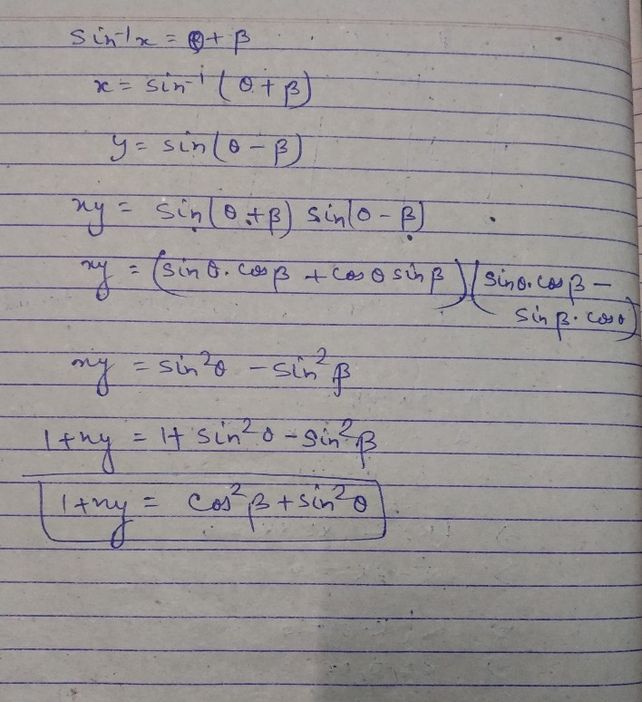 sin⁻¹x = θ + β
x = sin⁻¹ (θ + β)
y = sin(θ - β)
xy = sin(θ + β) sin(θ - β)
xy = (sinθ. cosβ + cosθ sinβ) (sinθ. cosβ -
sinβ. cosθ)
xy = sin²θ - sin²β
1+xy = 1+ sin²θ - sin²β
1+xy = cos²β + sin²θ